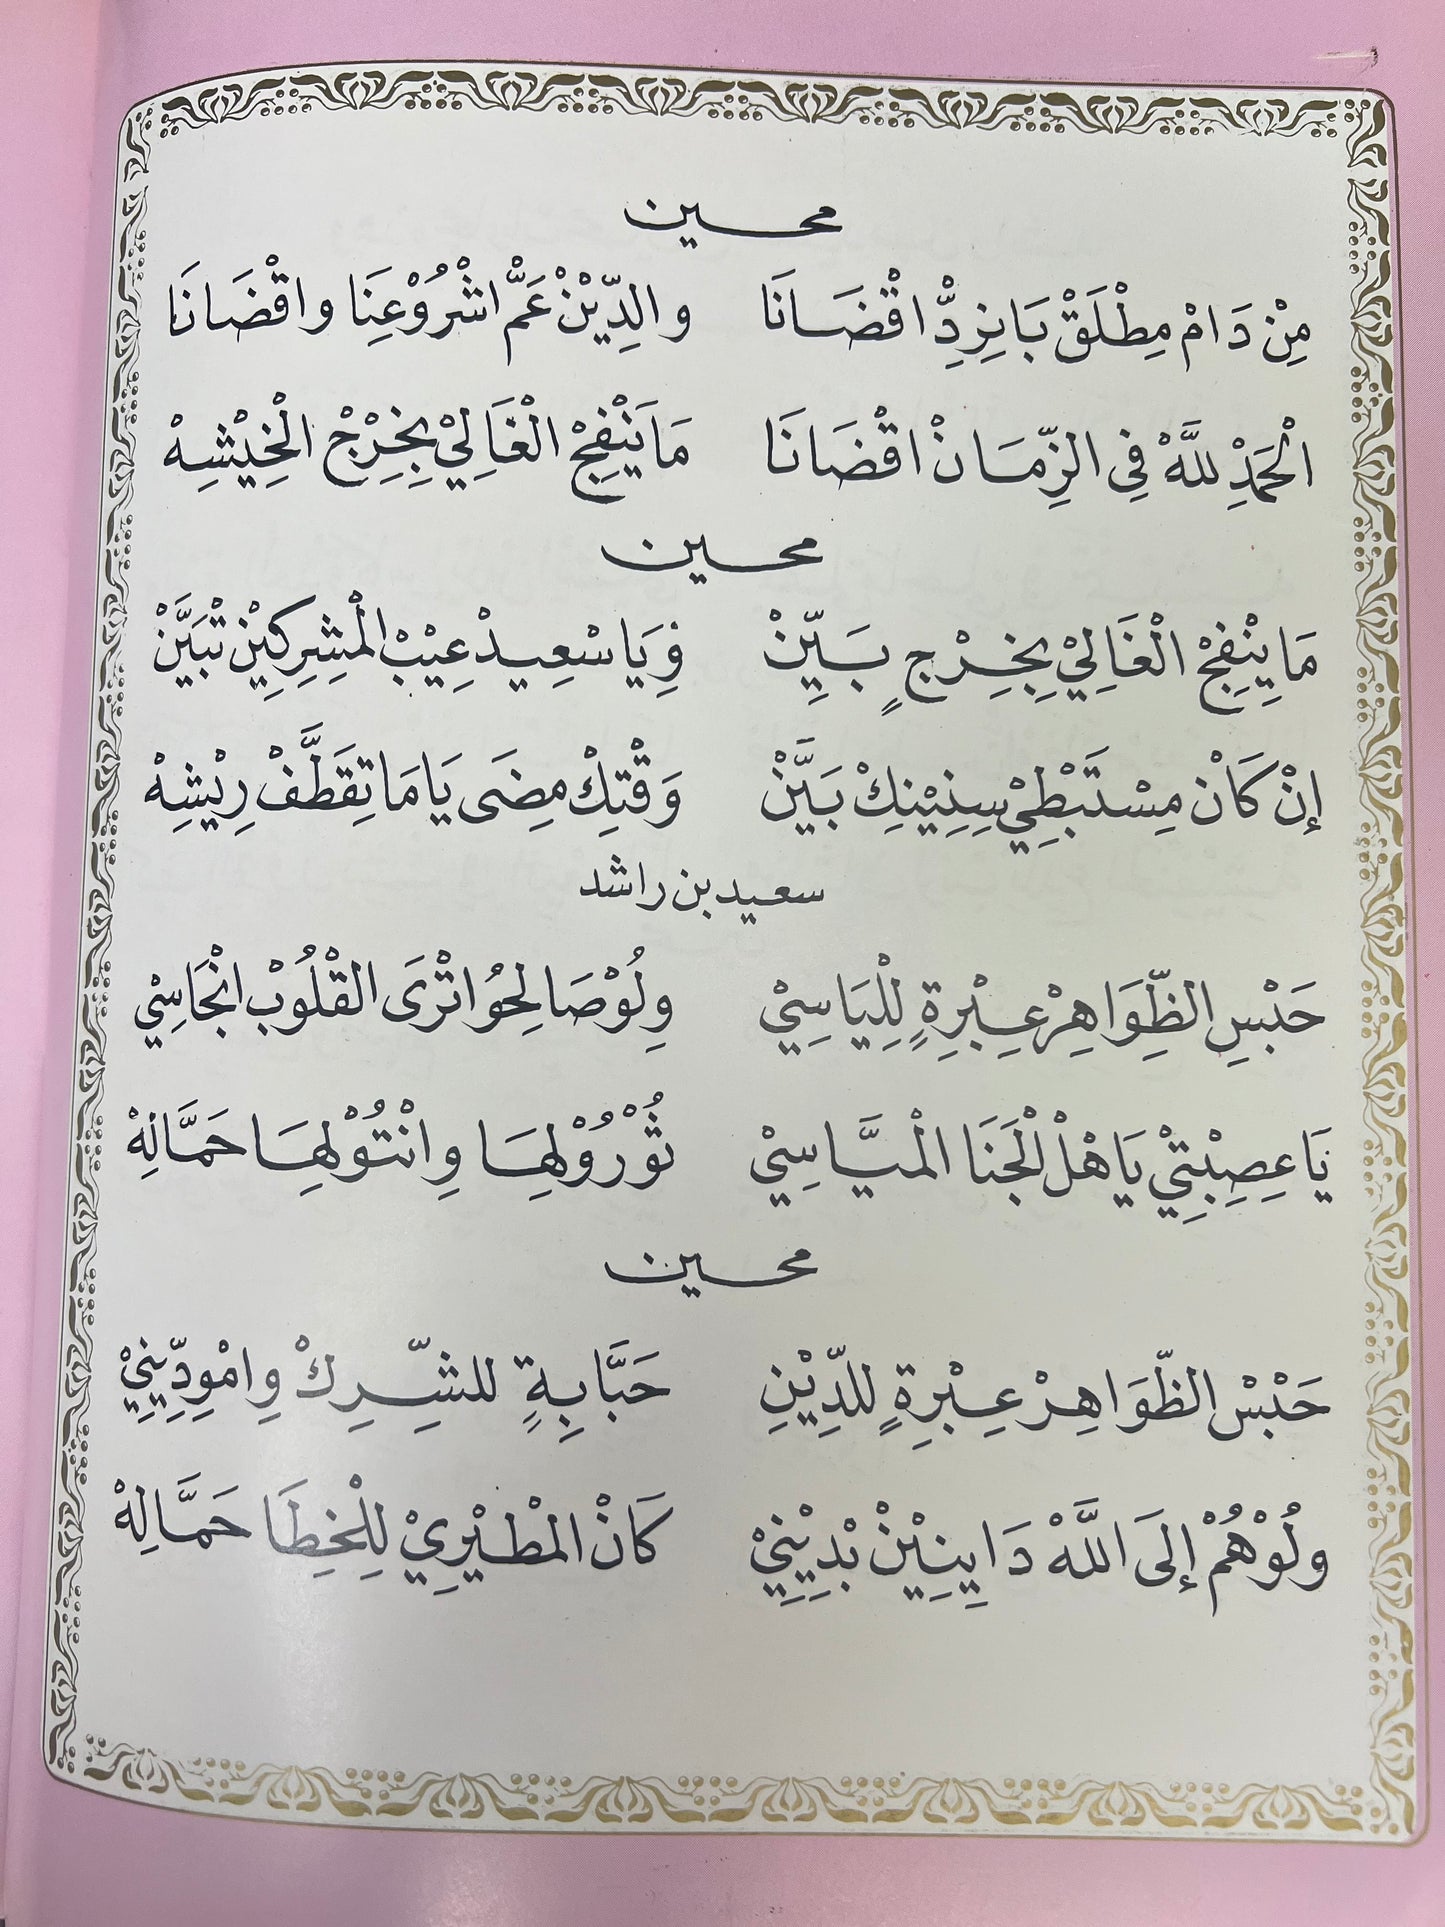 محسين
مِنْ دَامْ مِطْلَقْ بَانِرِدِّ اقْضَانَا والدِّيْنْ عَمَّ اشْرُوْعِنَا واقْضَانَا
الْحَمَدْ لله فِي الزِّمَانْ اقْضَانَا مَا يَنْفِجْ الْغَالِيْ بِخِرْجْ الْخِيْشِهْ
محسين
مَا يِنْفِجْ الْغَالِيْ بِخِرْجٍ بَيِّنْ وِيَا سْعِيدْ عِيْبْ الْمْشِرِكِيْن تْبَيَّنْ
إِنْ كَانْ مِسْتَبْطِيْ سِنِيْنِكْ بَيَّنْ وَقْتِكْ مِضَى يَا مَا تِقَطَّفْ رِيْشِهْ
سعيد بن راشد
حَبْسِ الظِّوَاهِرْ عِبْرِةٍ لِلْيَاسِيْ وِلُوْ صَالِحُوا تْرَى الْقْلُوبْ انْجَاسِيْ
يَا عِصِبْتِيْ يَا هْلْ الْجَنَا الْمَيَّاسِيْ ثُوْرُوْ لِهَا وِانْتُوْ لِهَا حَمَّالِهْ
محسين
حَبْسْ الظِّوَاهِرْ عِبْرِةٍ للدِّيْنِ حَبَّابِةٍ للشِّرِكْ وِامْوِدِّينِيْ
ولُوْ هُمْ إِلَى اللَّهْ دَايِنِيْنْ بْدِيْنِيْ كَانْ الْمْطَيْرِيْ لِلْخِطَا حَمَّالِهْ